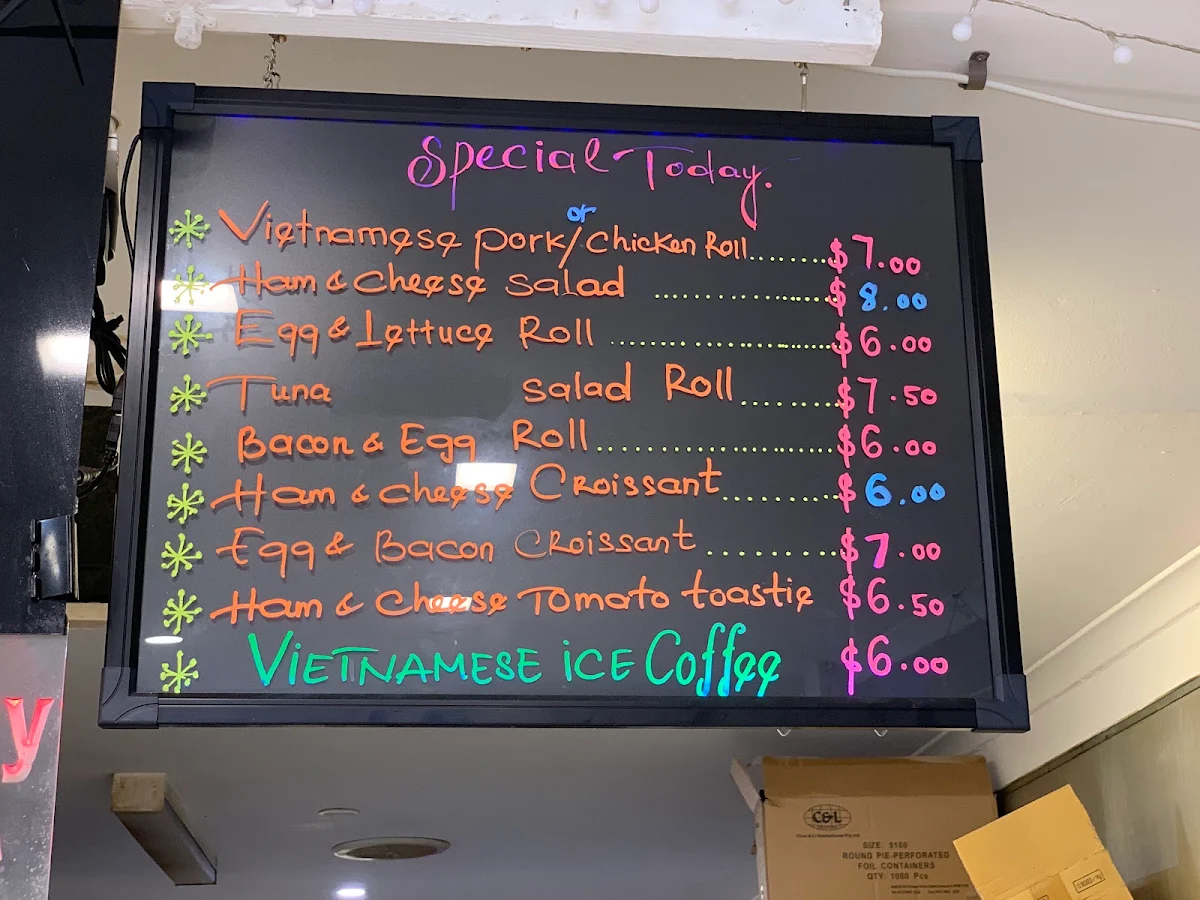 Special Today.
Vietnamese pork/ or Chicken Roll.......$7.00
Ham & cheese salad ..................$ 8.00
Egg & Lettuce Roll ........................$6.00
Tuna salad Roll..........$7.50
Bacon & Egg Roll..........................$6.00
Ham & cheese Croissant............$ 6.00
Egg & Bacon Croissant..............$7.00
Ham & cheese Tomato toastie $6.50
VIETNAMESE iCE Coffee $6.00
y
C&L
SIZE: 9160
ROUND PIE-PERFORATED
FOIL CONTAINERS
QTY: 1000 Pcs